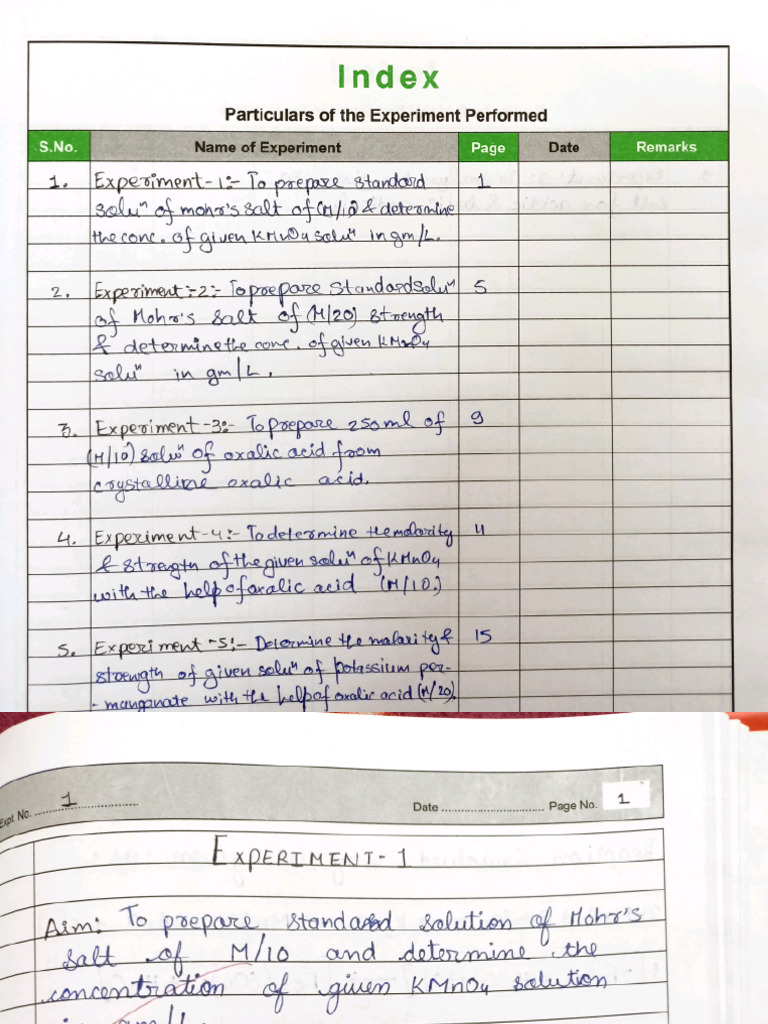 Index
Particulars of the Experiment Performed
S.No. Name of Experiment Page Date Remarks
1. Experiment-1:- To prepare standard 1
soluⁿ of mohr's salt of (M/10) & determine
the conc. of given KMnO4 soluⁿ in gm/L.
2. Experiment:-2:- To prepare Standard Soluⁿ 5
of Mohr's Salt of (M/20) strength
& determine the conc. of given KMnO4
soluⁿ in gm/L.
3. Experiment-3:- To prepare 250ml of 9
(M/10) soluⁿ of oxalic acid from
crystalline oxalic acid.
4. Experiment-4:- To determine the molarity 11
& strength of the given soluⁿ of KMnO4
with the help of oxalic acid (M/10.)
5. Experiment-5:- Determine the malarity & 15
strength of given soluⁿ of potassium per-
-manganate with the help of oxalic acid (M/20).
Expt. No. 1 Date Page No. 1
EXPERIMENT-1
Aim: To prepare standard solution of Mohr's
salt of M/10 and determine the
concentration of given KMnO4 solution
in gm/L